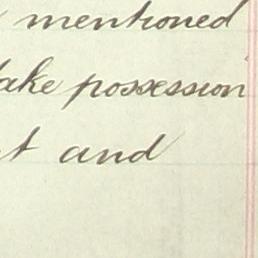 mentioned
take possession
and